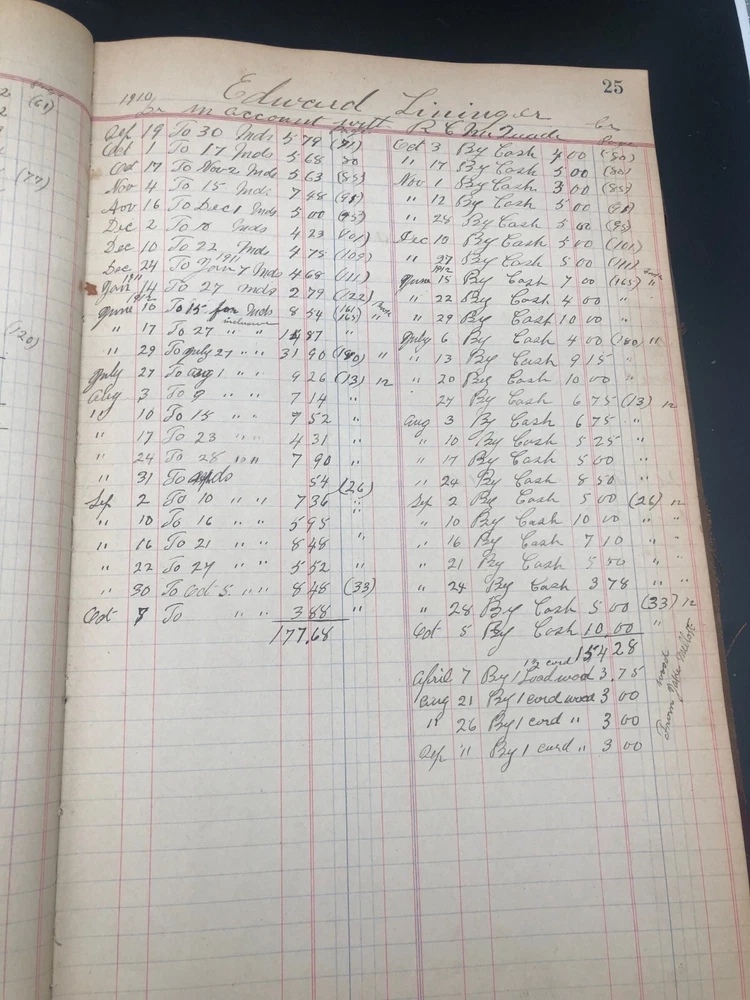 25
Edward Lininger
1910 Dr in account with R C McQuade Cr
Page
Sep 19 To 30 Mds 5 79 (71) Oct 3 By Cash 4 00 (80)
Oct 1 To 17 Mds 5 68 80 " 17 By Cash 5 00 (80)
Oct 17 To Nov 2 Mds 5 63 (85) Nov 1 By Cash 3 00 (85)
Nov 4 To 15 Mds 7 48 (91) " 12 By Cash 5 00 (91)
Nov 16 To Dec 1 Mds 5 00 (95) " 28 By Cash 5 00 (95)
Dec 2 To 10 Mds 4 23 (101) Dec 10 By Cash 5 00 (101)
Dec 10 To 22 Mds 4 75 (109) " 27 By Cash 5 00 (111)
Dec 24 To Jan 7 1911 Mds 4 68 (111) 1912 June 15 By Cash 7 00 (165) "
1911 Jan 14 To 27 Mds 2 79 (122) " 22 By Cash 4 00 "
1912 June 10 To 15 for Mds 8 54 (161) (165) " " 29 By Cash 10 00 "
inclusive
" 17 To 27 " " 14 87 " July 6 By Cash 4 00 (180) "
" 29 To July 27 " " 31 90 (180) " " 13 By Cash 9 15 "
July 27 To Aug 1 " " 9 26 (13) 12 " 20 By Cash 10 00 "
Aug 3 To 9 " " 7 14 " " 27 By Cash 6 75 (13) 12
" 10 To 15 " " 7 52 " Aug 3 By Cash 6 75 "
" 17 To 23 " " 4 31 " " 10 By Cash 5 25 "
" 24 To 28 " " 7 90 " 17 By Cash 5 00 "
" 31 To Mds 54 (26) " 24 By Cash 8 50 "
Sep 2 To 10 " " 7 36 " Sep 2 By Cash 5 00 (26) 12
" 10 To 16 " " 5 95 " " 10 By Cash 10 00 " "
" 16 To 21 " " 8 48 " " 16 By Cash 7 10 " "
" 22 To 27 " " 5 52 " 21 By Cash 5 50 " "
" 30 To Oct 5 " " 8 48 (33) " 24 By Cash 3 78 " "
Oct 7 To " " 3 88 " " 28 By Cash 5 00 (33) 12
177,68 Oct 5 By Cash 10 00 "
154 28
1/2 cord
April 7 By 1 Load wood 3.75
Aug 21 By 1 cord wood 3 00
" 26 By 1 cord " 3 00
Sep " By 1 cord " 3 00
wood